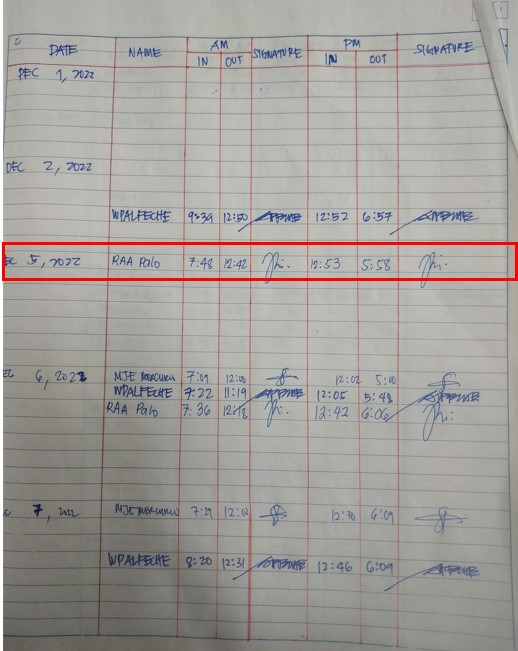 DATE NAME AM IN OUT SIGNATURE PM IN OUT SIGNATURE
DEC 1, 2022
DEC 2, 2022
WPALFECHE 9:39 12:50 12:52 6:57
EC 5, 2022 RAA Palo 7:48 12:42 12:53 5:58
EC 6, 2022 MJE MERCURIO 7:09 12:00 12:02 5:00
WPALFECHE 9:22 11:19 12:05 5:48
RAA Palo 7:36 12:42 6:06
C 7, 2022 MJE MERCURIO 7:29 12:00 6:09
WPALFECHE 8:20 12:31 12:46 6:09